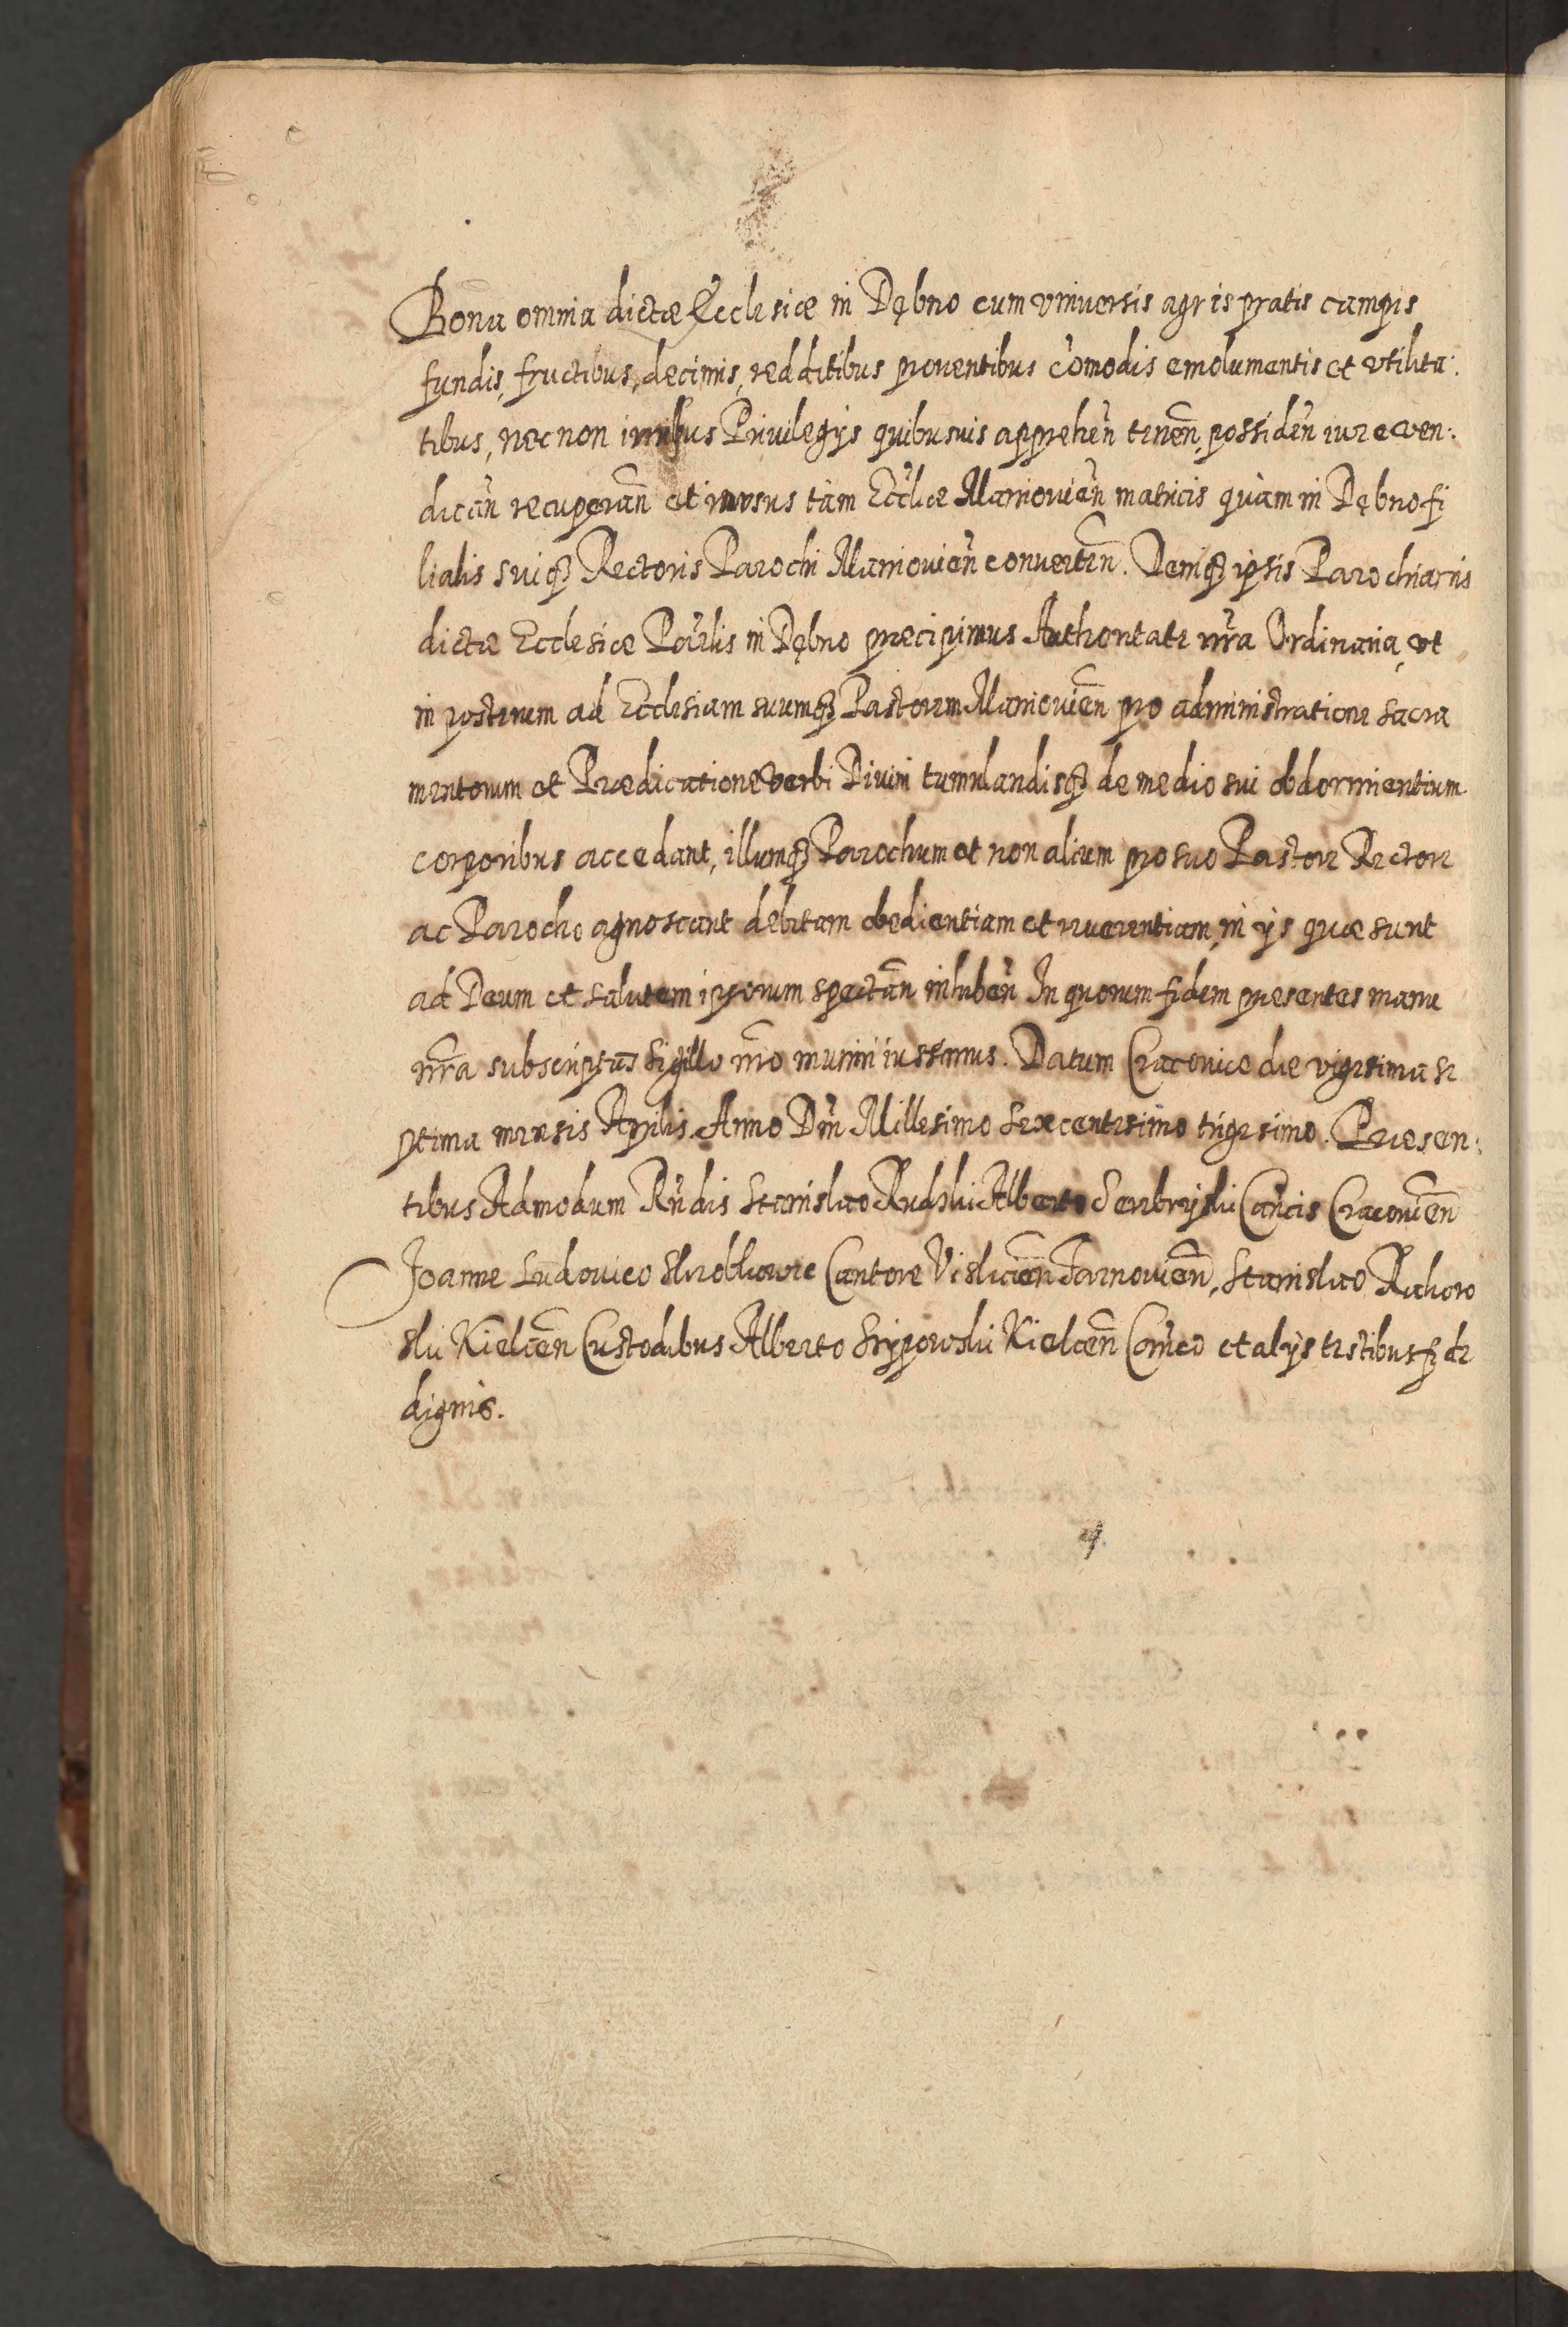 Bona omnia dictæ Ecclesiæ in Dębno cum vniuersis agris pratis campis
fundis, fructibus, decimis, redditibus prouentibus cōmodis emolumentis et vtilita:
tibus, nec non iuribus Priuilegijs quibusuis apprehen̄ tenen̄, possiden̄ iure even:
dican̄ recuperan̄ et in vsus tàm Eccliæ Maniouien̄ matricis quàm in Dębno fi
lialis suiq̨ Rectoris Parochi Maniouien̄ conuerten̄. Deniq̨ ipsis Parochianis
dictæ Ecclesiæ Pārlis in Dębno præcipimus Authoritate nr̄a Ordinaria, vt
in posterum ad Ecclesiam suumq̨ Pastorem Maniouien̄ pro administratione sacra
mentorum et Prædicatione Verbi Diuini tumulandisq̨ de medio sui obdormientium
corporibus accedant, illumq̨ Parochum et non alium pro suo Pastore Rectore
ac Parocho agnoscant debitam obedientiam et reuerentiam, in ijs quæ sunt
ad Deum et salutem ipsorum spectan̄ inhiben̄ In quorum fidem præsentes manu
nr̄a subscriptas sigillo nr̄o muniri iussimus. Datum Cracouiæ die vigesima se
ptima mensis Aprilis Anno Dn̄i Millesimo Sexcentesimo trigesimo. Præsen:
tibus Admodum Rn̄dis Stanislao Rudski Alberto Serebryski Can̄cis Cracouien̄
Joanne Ludouico Strobkowic Cantore Vislicien̄ Tarnouien̄, Stanislao
ski Kielcen̄ Custodibus Alberto Kielcen̄ Can̄co et alijs testibus fide
dignis.